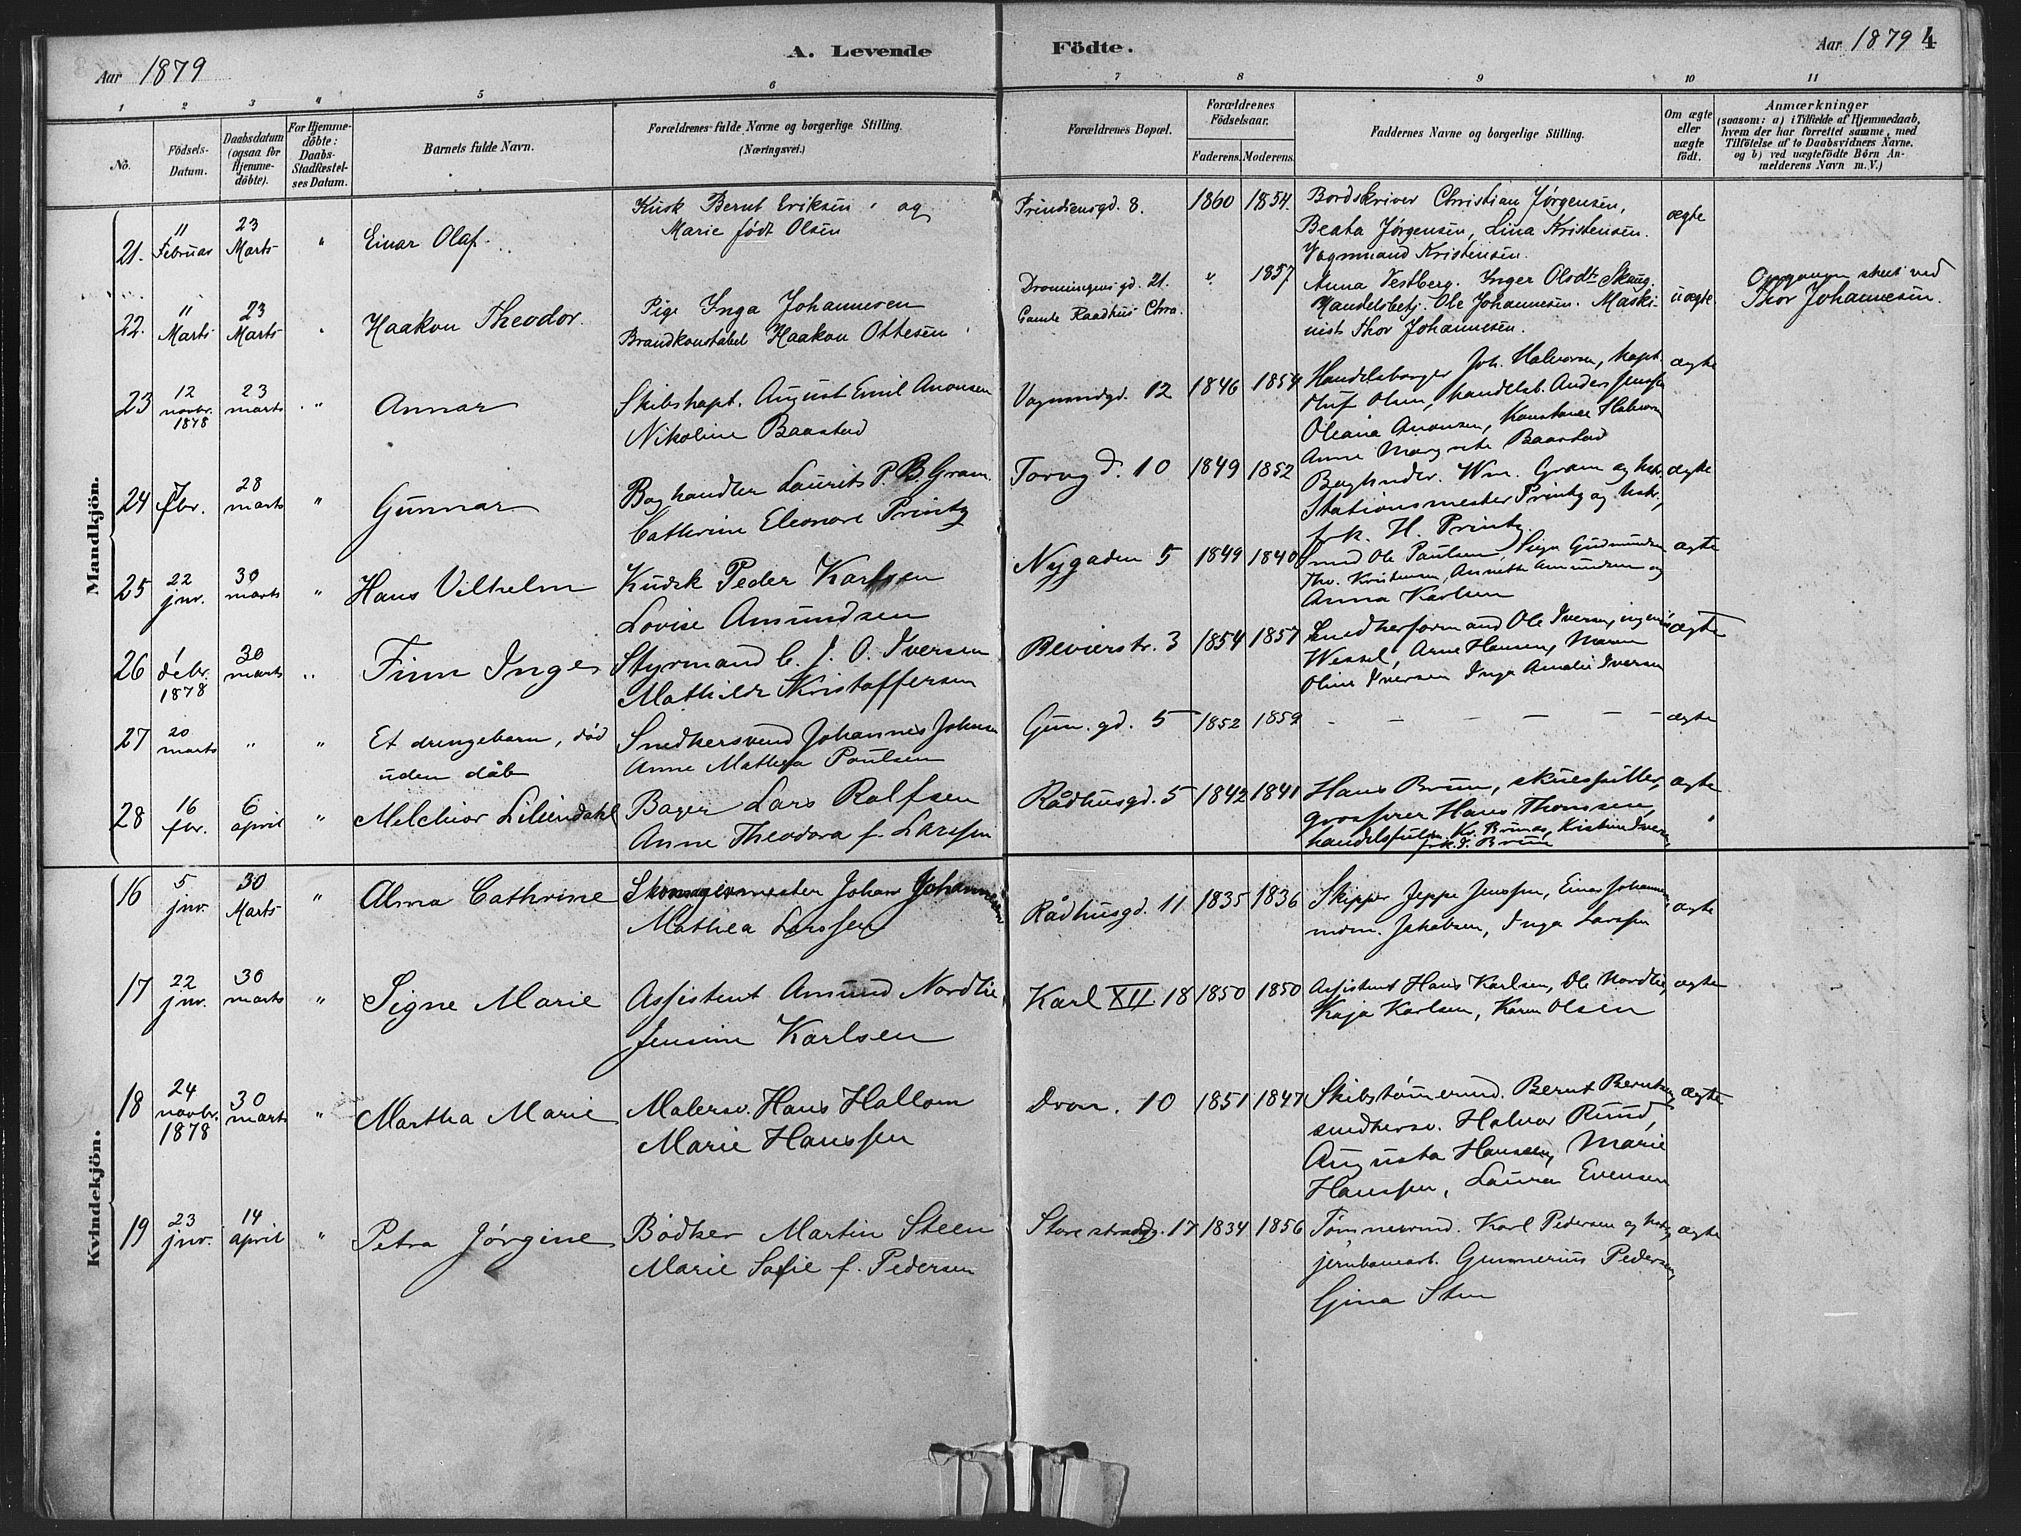 Aar 1879
A. Levende Födte.
Aar 1879 4
1 2 3 4 5 6 7 8 9 10 11
No.
Födsels-Datum.
Daabsdatum (ogsaa for Hjemmedöbte).
For Hjemmedöbte: Daabs-Stadfæstelses Datum.
Barnets fulde Navn.
Forældrenes fulde Navne og borgerlige Stilling.
(Næringsvei.)
Forældrenes Bopæl.
Forældrenes Födselsaar.
Faderens. Moderens.
Faddernes Navne og borgerlige Stilling.
Om ægte eller uægte födt.
Anmærkninger
(saasom: a) i Tilfælde af Hjemmedaab, hvem der har forrettet samme, med Tilföielse af to Daabsvidners Navne. og b) ved uægtefödte Börn Anmelderens Navn m.V.)
Mandkjön.
21. 11 Februar 23 Marts " Einar Olaf.
Kusk Bernt Eriksen og
Marie født Olsen
Prindsensgd. 8. 1860 1854.
Bordskriver Christian Jørgensen,
Beata Jørgensen, Lina Kristensen.
Vognmand Kristensen.
ægte
22. 11 Marts 23 Marts " Haakon Theodor.
Pige Inga Johannesen
Brandkonstabel Haakon Ottesen
Dronningens gd. 21.
Gamle Raadhus Chra.
" 1857
Anna Vestberg. Inger Olsdtr Skaug.
Handelsbetj. Ole Johannesen. Maski-
nist Thor Johannesen.
uægte
Opgaven skeet ved
Thor Johannesen.
23 12 novbr. 1878 23 marts " Annar
Skibskapt. August Emil Anonsen
Nikoline Baastad
Vognmdgd. 12 1846 1854
Handelsborger Joh. Halvorsen, kapt.
Oluf Olsen, handelsb. Anders Jenssen
Oleana Anonsen, Konstanse Halvorsen
Anne Margrete Baastad
ægte
24 7 fbr. 28 marts " Gunnar
Boghandler Laurits P. B. Gram
Cathrine Eleonore Printz
Torvgd. 10 1849 1852
Wm. Gram og hstr.
Stationsmester Printz og hstr,
frk. H. Printz.
ægte
25 22 jnr. 30 marts " Hans Vilhelm
Kudsk Peder Karlsen
Lovise Amundsen
Nygaden 5 1849 1840
Smed Ole Paulsen, Gudmundsen
Kristensen, Annette Amundsen og
Anna Karlsen
ægte
26 1 debr. 1878 30 marts " Finn Inge
Styrmand C. J. O. Iversen
Mathilde Kristoffersen
Revierstr. 3 1854 1857
Smedherformand Ole Iversen,
Wessel, Arne Hansen, Maren
Oline Iversen Inga Amalie Iversen
ægte
27 20 marts " " Et drengebarn, død
uden dåb
Snedkersvend Johannes Johnsen
Anne Mathea Poulsen
Grøn. gd. 5 1852 1859 – – – – – – ægte
28 16 fbr. 6 april " Melchior Liliendahl
Bager Lars Rolfsen
Anne Theodora f. Larssen
Rådhusgd. 5 1842 1841
Hans Brun, skuespiller,
grosserer Hans Thomsen
ægte
"
Kvindekjön.
16 5 jnr. 30 Marts " Alma Cathrine
Skomagermester Johan Johannesen
Mathea Larssen
Rådhusgd. 11 1835 1836
Skipper Jeppe Jenssen, Einar Johannesen,
mdm. Jakobsen, Inga Larssen
ægte
17 22 jnr. 30 marts " Signe Marie
Assistent Amund Nordlie
Jensine Karlsen
Karl XII 18 1850 1850
Assistent Hans Karlsen, Ole Nordlie,
Kaja Karlsen, Karen Olsen
ægte
18 24 novbr. 1878 30 marts " Martha Marie
Malersv. Hans Hallom
Marie Hanssen
Dron. 10 1851 1847
Skibstømermd. Bernt Berntsen,
snedkersv. Halvor Ruud,
Augusta Hansen, Marie
Hanssen, Laura Evensen
ægte
19 23 jnr. 14 april " Petra Jørgine
Bødker Martin Steen
Marie Sofie f. Pedersen
Store strandg. 17 1834 1856
Tømmermd. Karl Pedersen og hstr,
jernbanearb. Gunnerius Pedersen,
Gina Sten
ægte